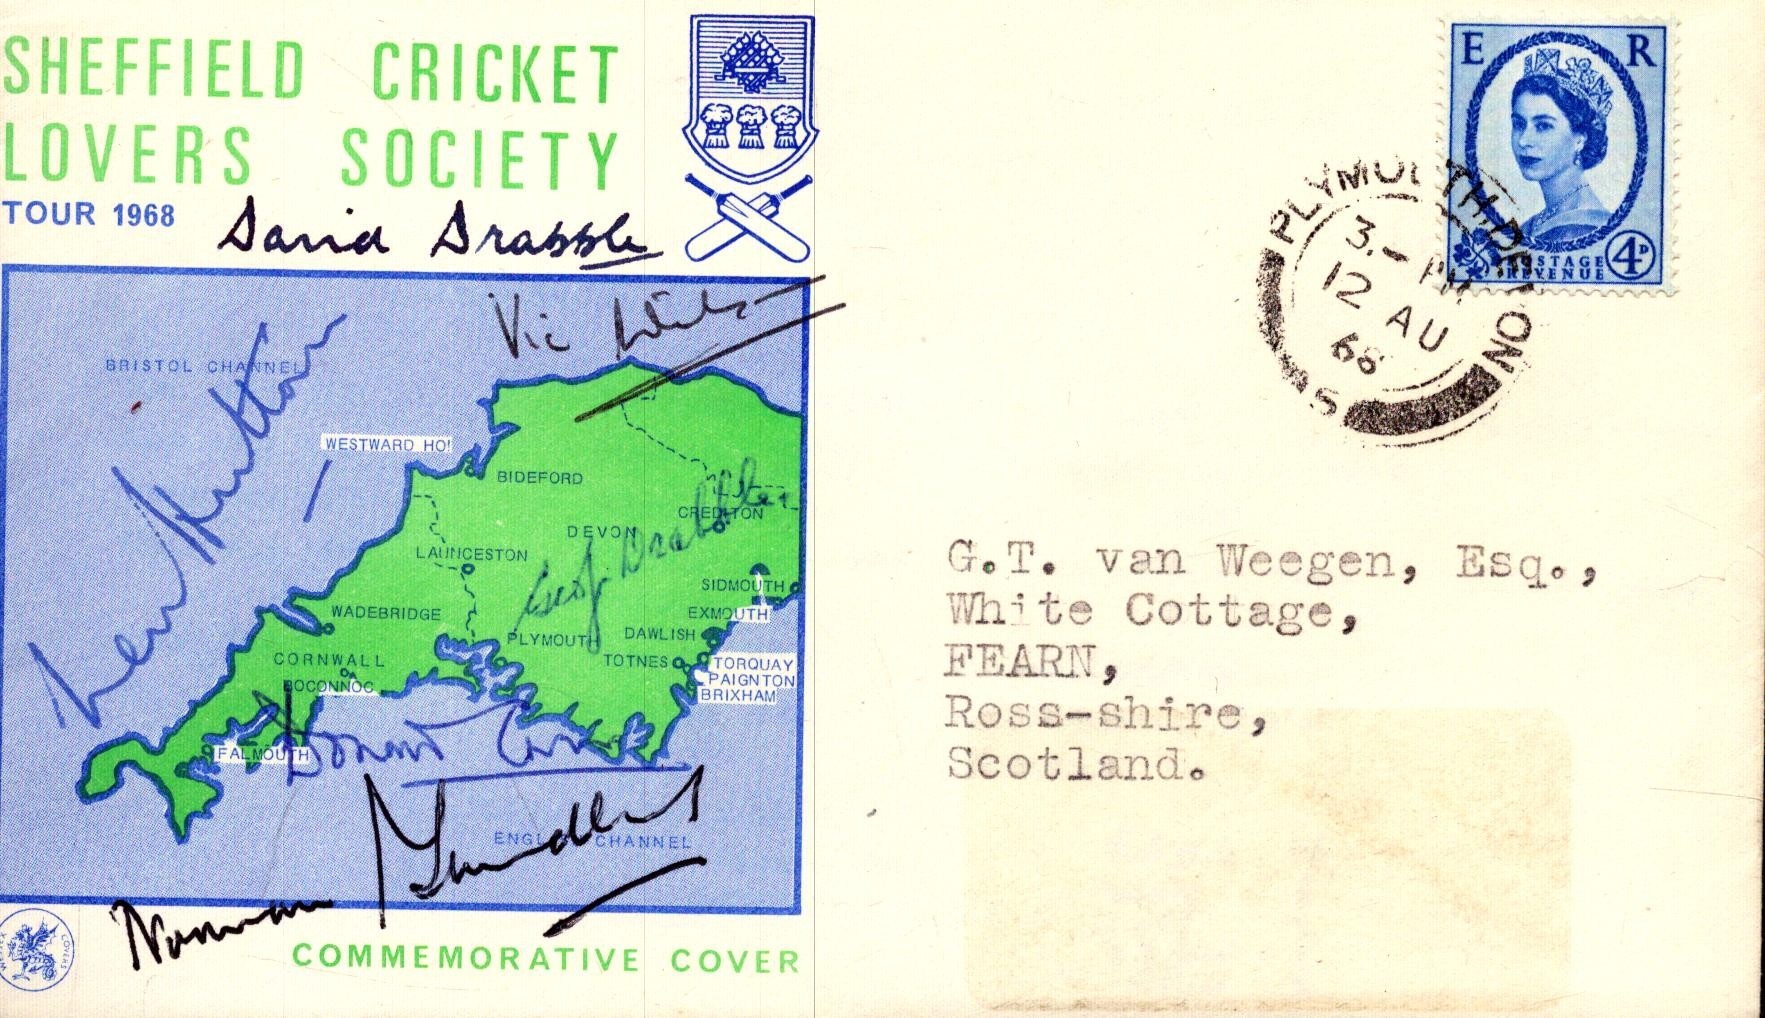 SHEFFIELD CRICKET
LOVERS SOCIETY
TOUR 1968
David Drabble
Vic
Len Hutton
BRISTOL CHANNEL
WESTWARD HO!
BIDEFORD
CREDITON
DEVON
Geof Drabble
LAUNCESTON
SIDMOUTH
WADEBRIDGE
EXMOUTH
PLYMOUTH
DAWLISH
CORNWALL
TOTNES
TORQUAY
BOCONNOC
PAIGNTON
BRIXHAM
FALMOUTH
ENGLISH CHANNEL
Norman
COMMEMORATIVE COVER
WESSEX COVERS
E R
POSTAGE
REVENUE
4D
PLYMOUTH DEVON
3.- PM
12 AU
68
S
G.T. van Weegen, Esq.,
White Cottage,
FEARN,
Ross-shire,
Scotland.